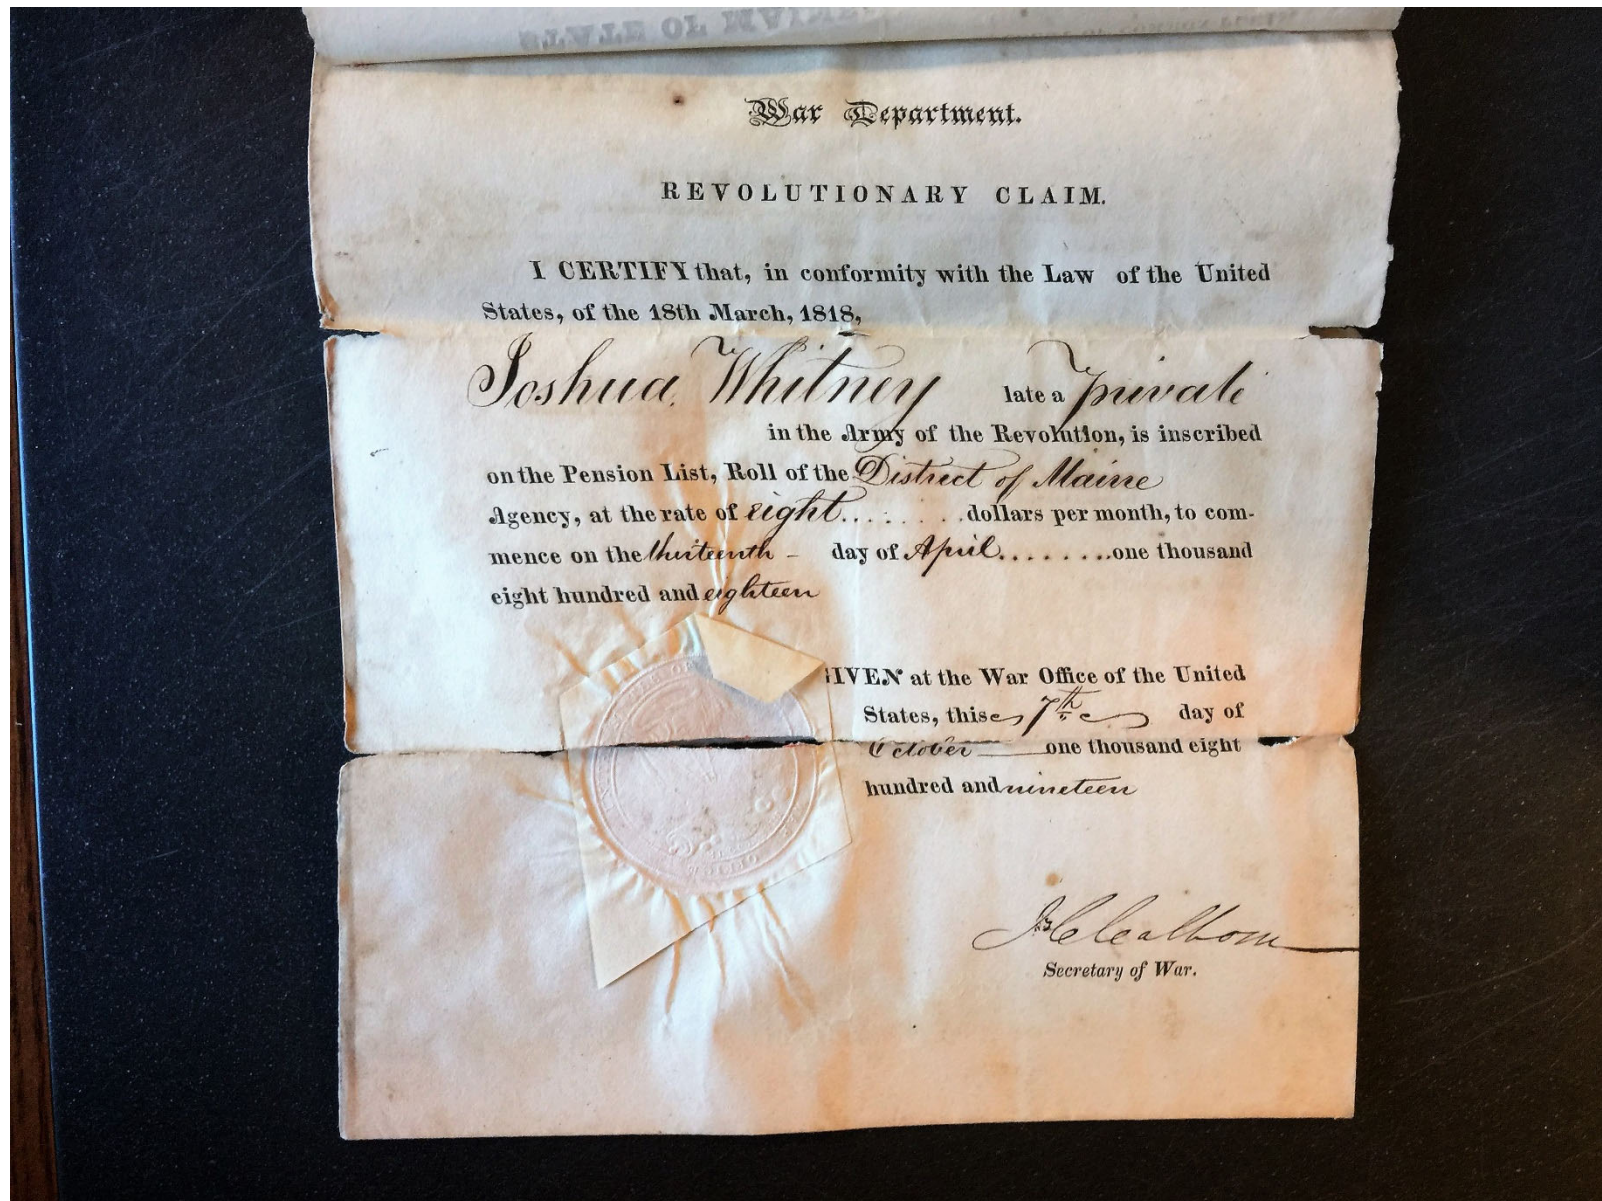 STATE OF MAINE
War Department.
REVOLUTIONARY CLAIM.
I CERTIFY that, in conformity with the Law of the United
States, of the 18th March, 1818,
Joshua Whitney late a private
in the Army of the Revolution, is inscribed
on the Pension List, Roll of the District of Maine
Agency, at the rate of eight........dollars per month, to com-
mence on the thirteenth – day of April........one thousand
eight hundred and eighteen
GIVEN at the War Office of the United
States, this 7th day of
October one thousand eight
hundred and nineteen
J C Calhoun
Secretary of War.